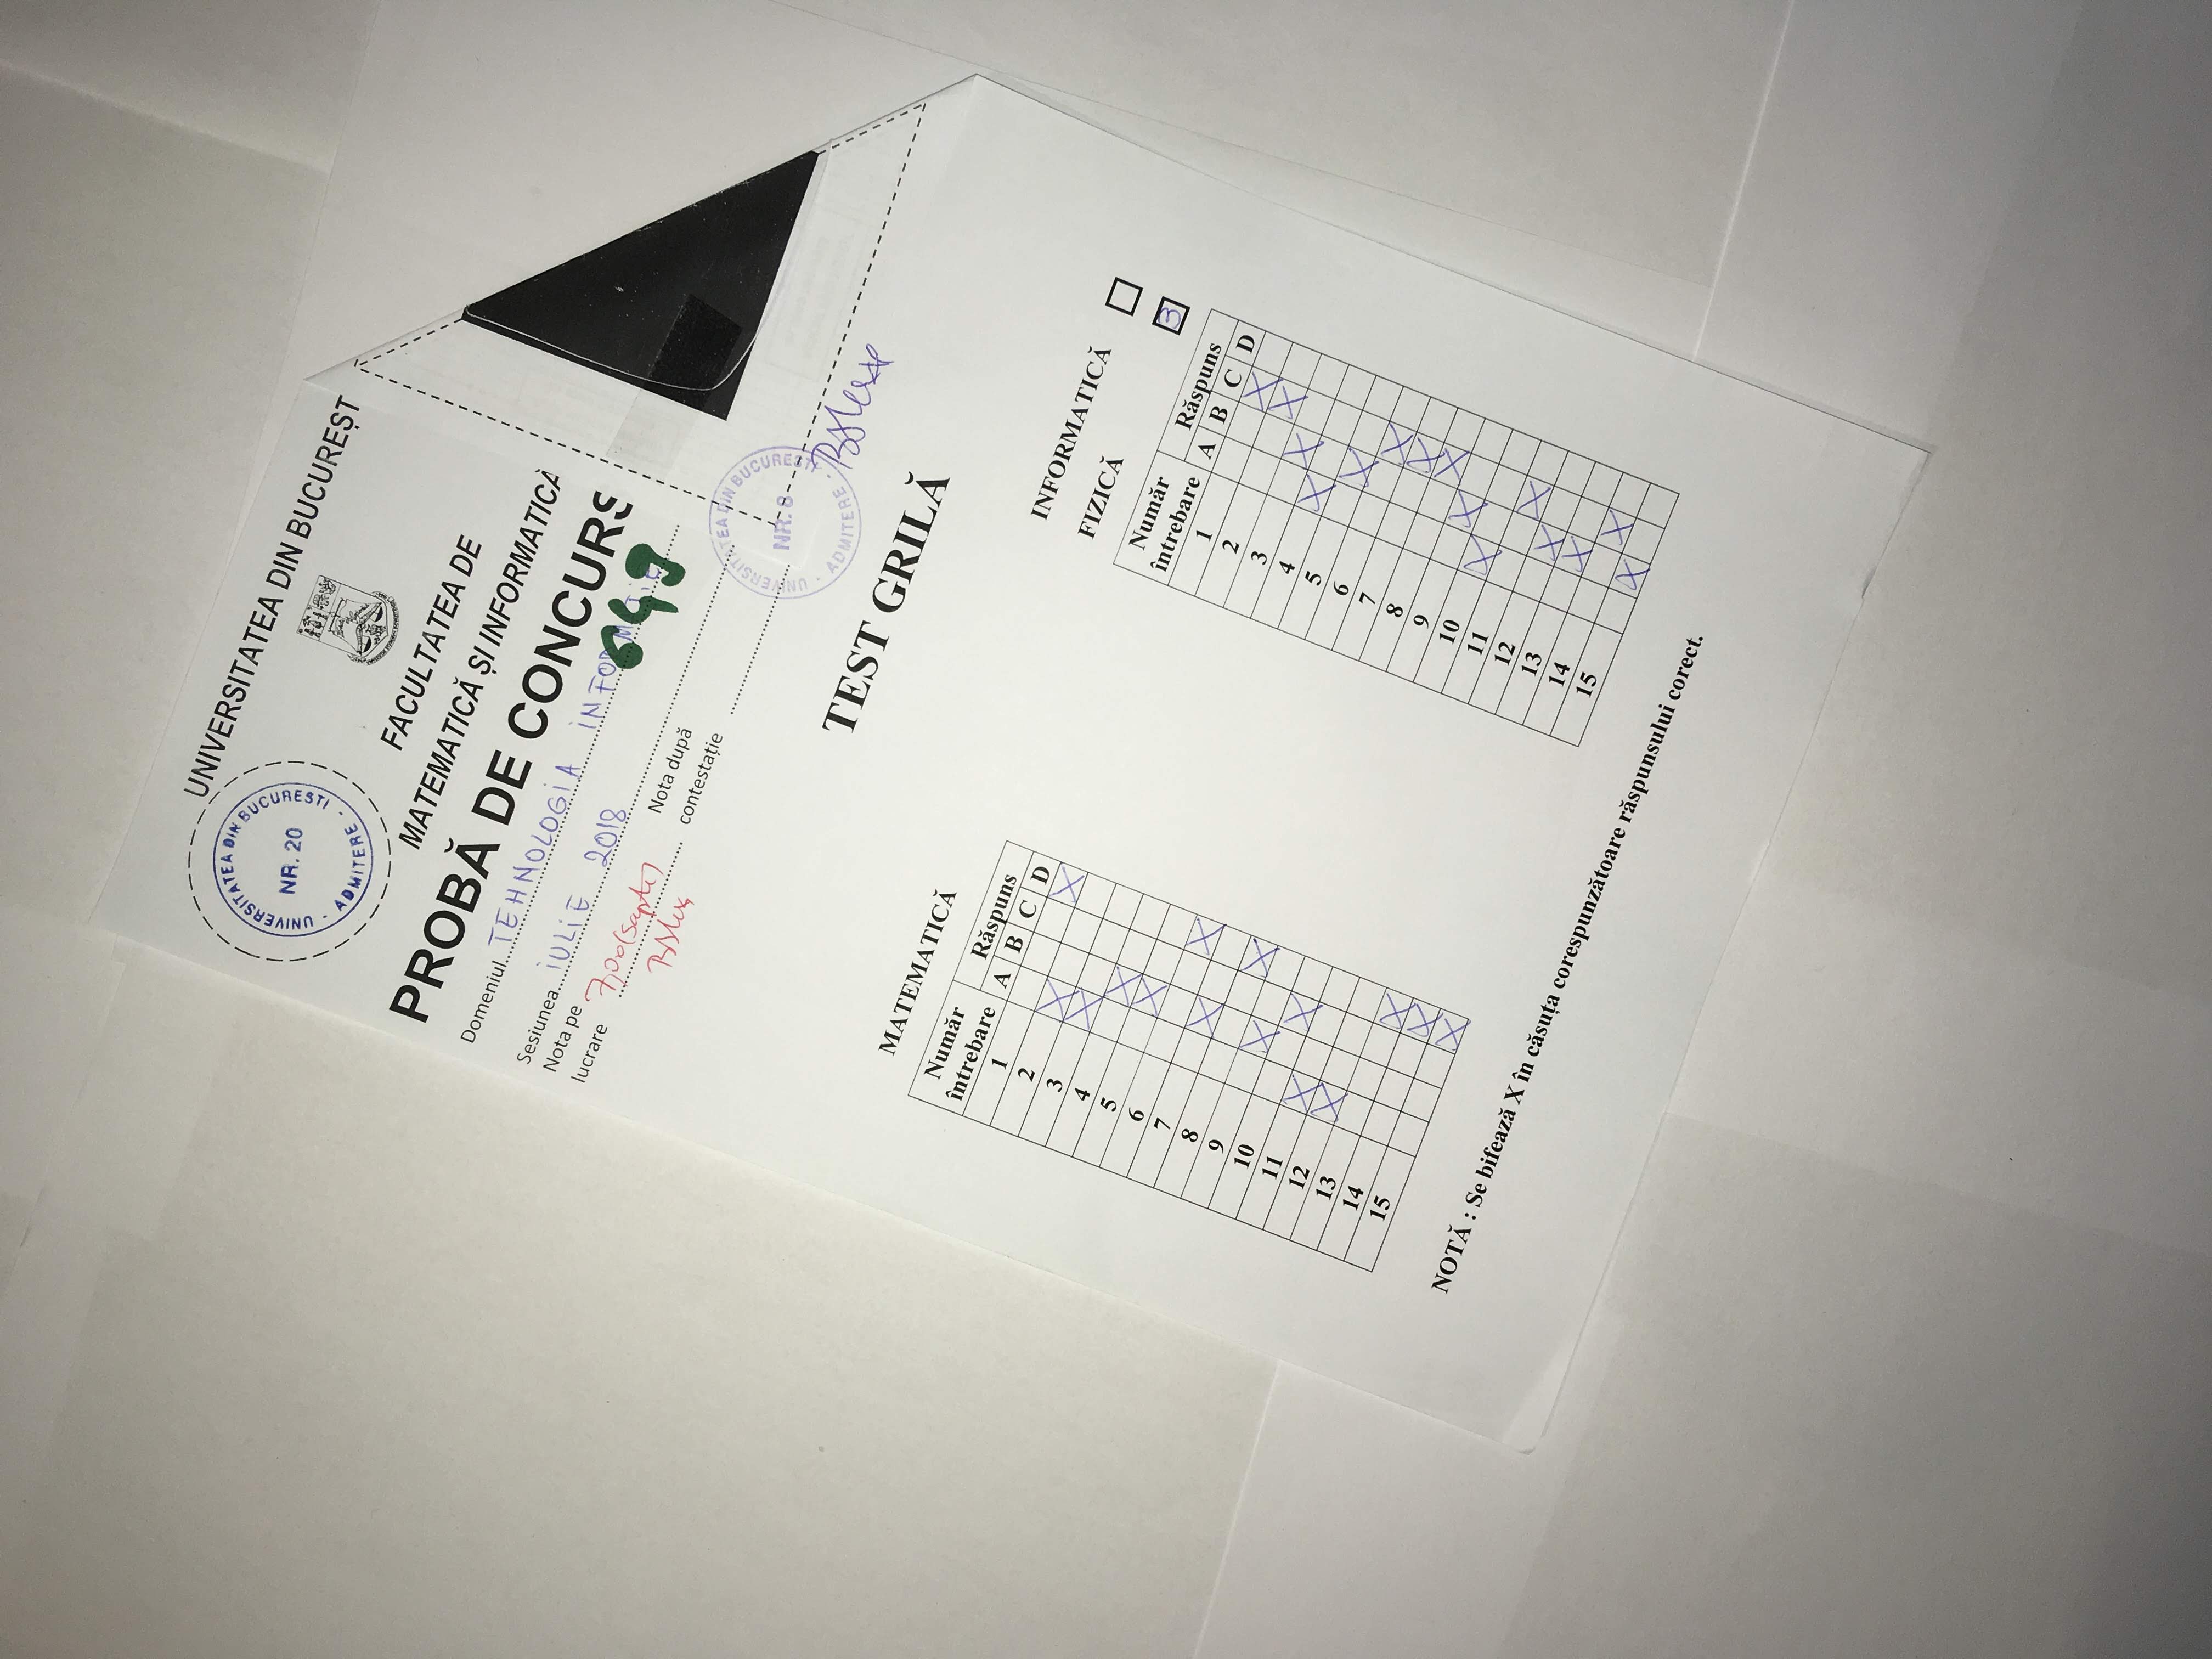 UNIVERSITATEA DIN BUCUREȘT
UNIVERSITATEA DIN BUCUREȘTI
NR. 20
ADMITERE
FACULTATEA DE
MATEMATICĂ ȘI INFORMATICĂ
PROBĂ DE CONCURS
Domeniul TEHNOLOGIA INFORMAȚIEI
649
Sesiunea IULIE 2018
Nota pe lucrare 7,00 (șapte)
Nota după contestație
UNIVERSITATEA DIN BUCUREȘTI
NR. 8
ADMITERE
TEST GRILĂ
MATEMATICĂ
Număr întrebare Răspuns
A B C D
1 X
2 X
3 X
4 X
5 X
6 X
7 X
8 X
9 X
10 X
11 X
12 X
13 X
14 X
15 X
INFORMATICĂ
FIZICĂ
Număr întrebare Răspuns
A B C D
1 X
2 X
3 X
4 X
5 X
6 X
7 X
8 X
9 X
10 X
11 X
12 X
13 X
14 X
15 X
NOTĂ : Se bifează X în căsuța corespunzătoare răspunsului corect.